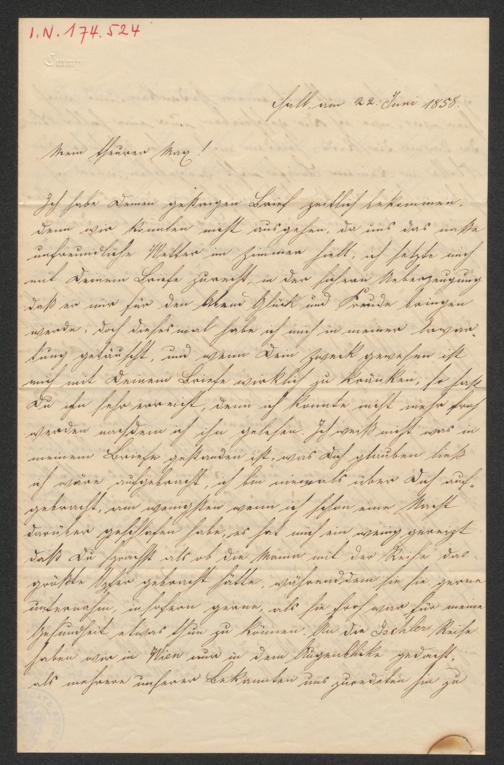 I.N. 174.524
Hall am 22. Juni 1858.
Mein theurer Max!
Ich habe Deinen gestrigen Brief zeitlich bekommen,
denn wir konnten nicht ausgehen, da uns das nasse
unfreundliche Wetter im Zimmer hielt, ich setzte mich
mit Deinem Briefe zurecht, in der sichern Ueberzeugung
daß er mir für den Abend Glück und Freude bringen
werde, doch dießesmal habe ich mich in meiner Erwar-
tung getäuscht, und wenn Dein Zweck gewesen ist
mich mit Deinem Briefe wirklich zu kränken, so hast
Du ihn sehr erreicht, denn ich konnte nicht mehr froh
werden nachdem ich ihn gelesen. Ich weiß nicht was in
meinem Briefe gestanden ist, was Dich glauben ließ
ich wäre aufgebracht, ich bin niemals über Dich auf-
gebracht, am wenigsten wenn ich schon eine Nacht
darüber geschlafen habe, es hat mich ein wenig gereizt
daß Du sprachst als ob die Mama mit der Reise das
größte Opfer gebracht hätte, währenddem sie sie gerne
unternahm, insofern gerne, als sie froh war für meine
Gesundheit etwas thun zu können. An die Ischler Reise
haben wir in Wien nur in dem Augenblicke gedacht,
als mehrere unserer Bekannten uns zuredeten hin zu